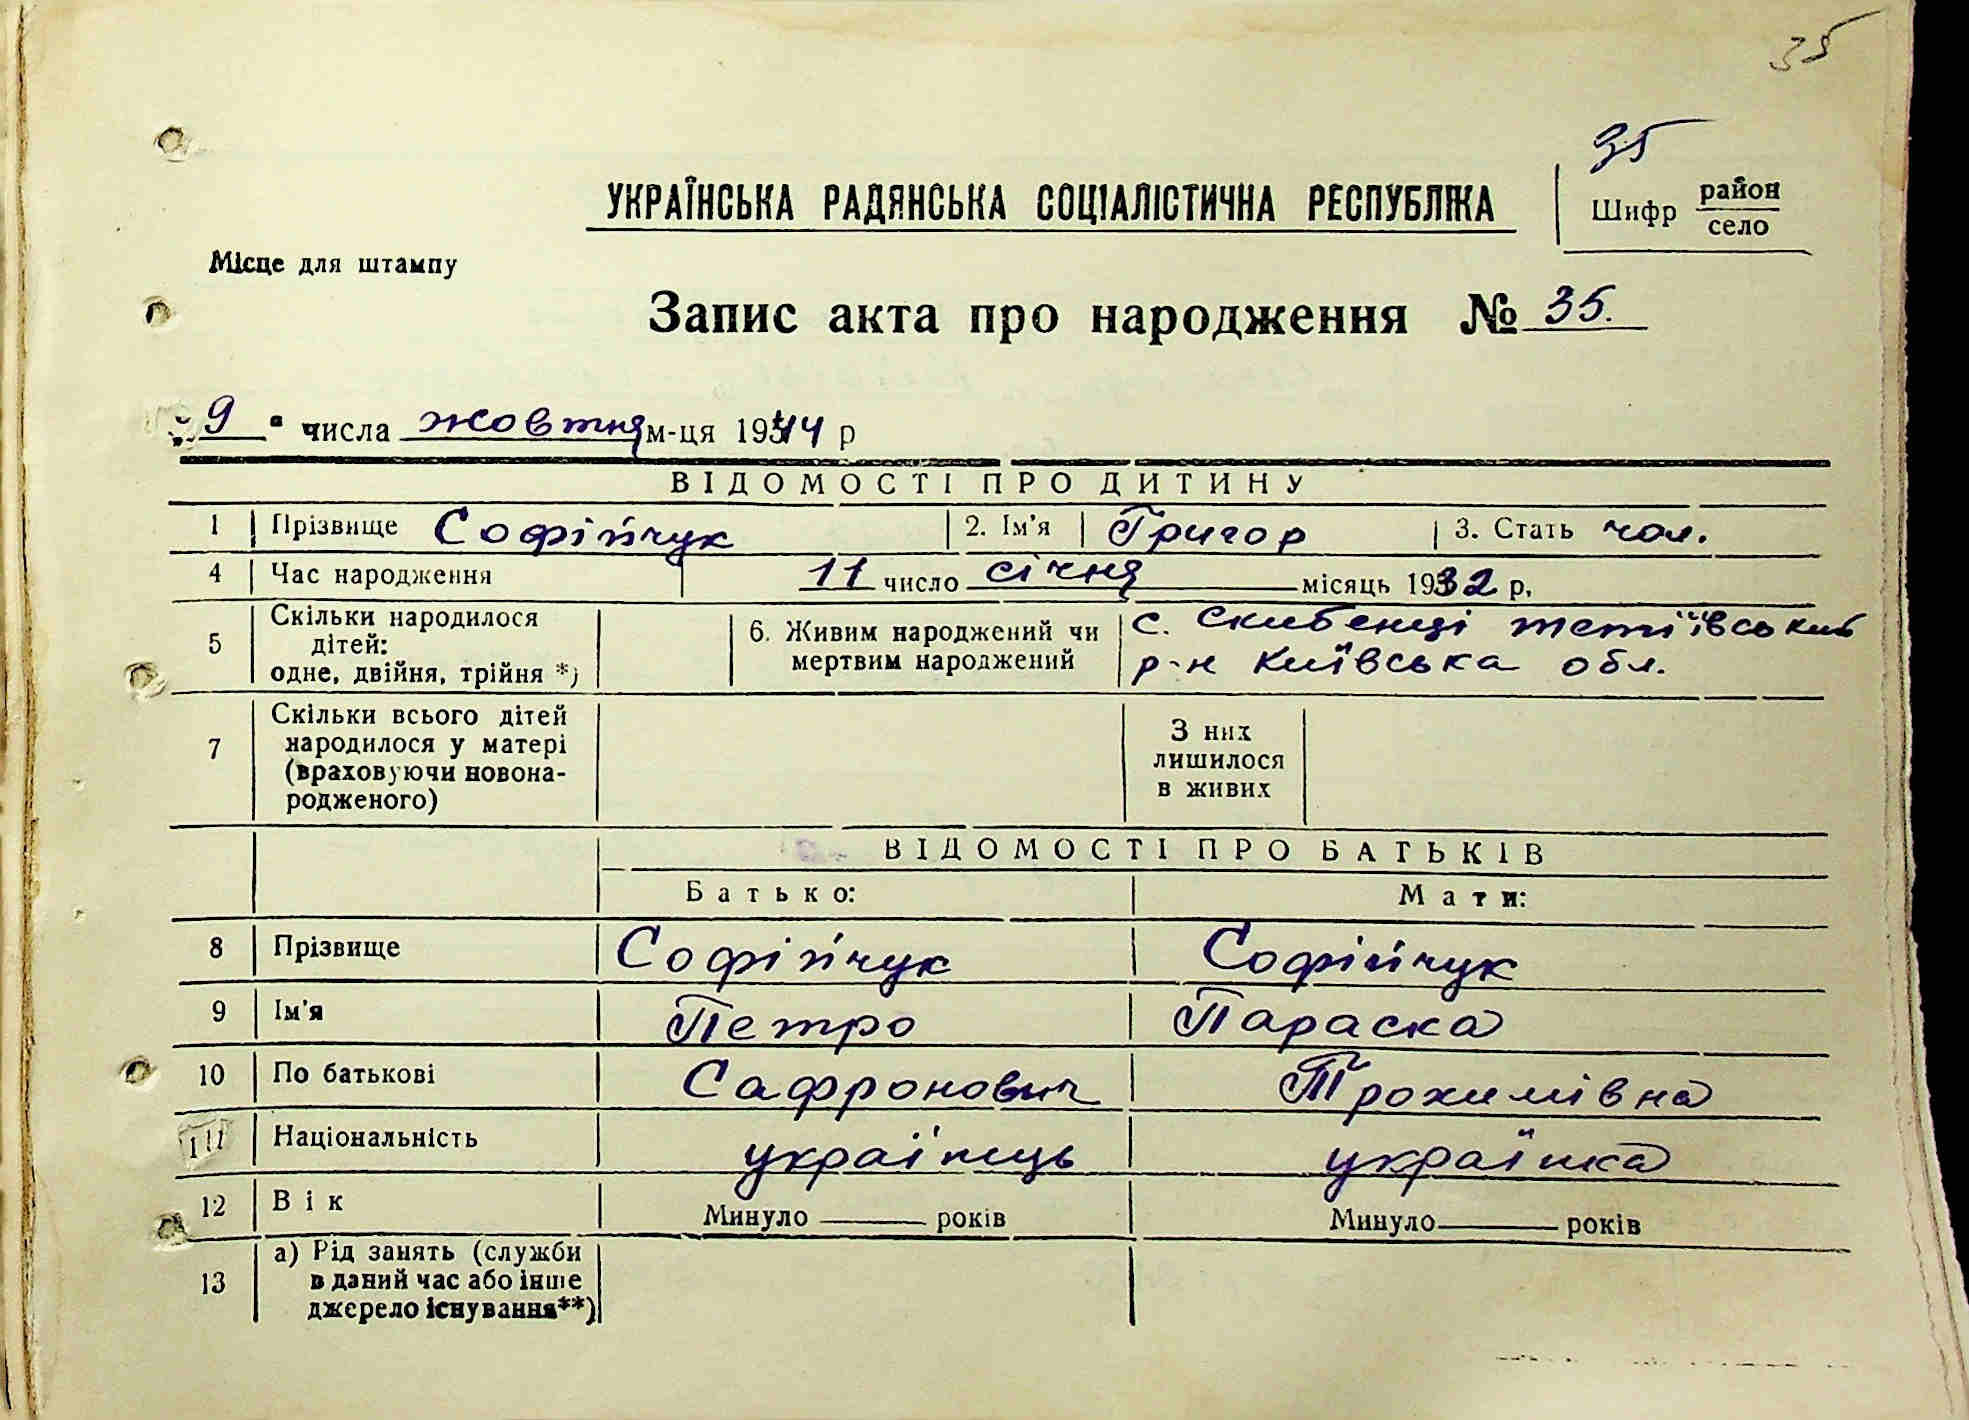 35
35
УКРАЇНСЬКА РАДЯНСЬКА СОЦІАЛІСТИЧНА РЕСПУБЛІКА
Шифр район
село
Місце для штампу
Запис акта про народження № 35.
„9" числа жовтня м-ця 1944 р
ВІДОМОСТІ ПРО ДИТИНУ
1 Прізвище Софійчук 2. Ім'я Григор 3. Стать чол.
4 Час народження 11 число січня місяць 1932 р.
5 Скільки народилося дітей: одне, двійня, трійня *)
6. Живим народжений чи мертвим народжений
с. Скибенці тетіївський
р-н Київська обл.
7 Скільки всього дітей
народилося у матері
(враховуючи новона-
родженого)
З них
лишилося
в живих
ВІДОМОСТІ ПРО БАТЬКІВ
Батько: Мати:
8 Прізвище Софійчук Софійчук
9 Ім'я Петро Параска
10 По батькові Сафронович Трохимівна
11 Національність українець українка
12 Вік Минуло років Минуло років
13 а) Рід занять (служби
в даний час або інше
джерело існування**)